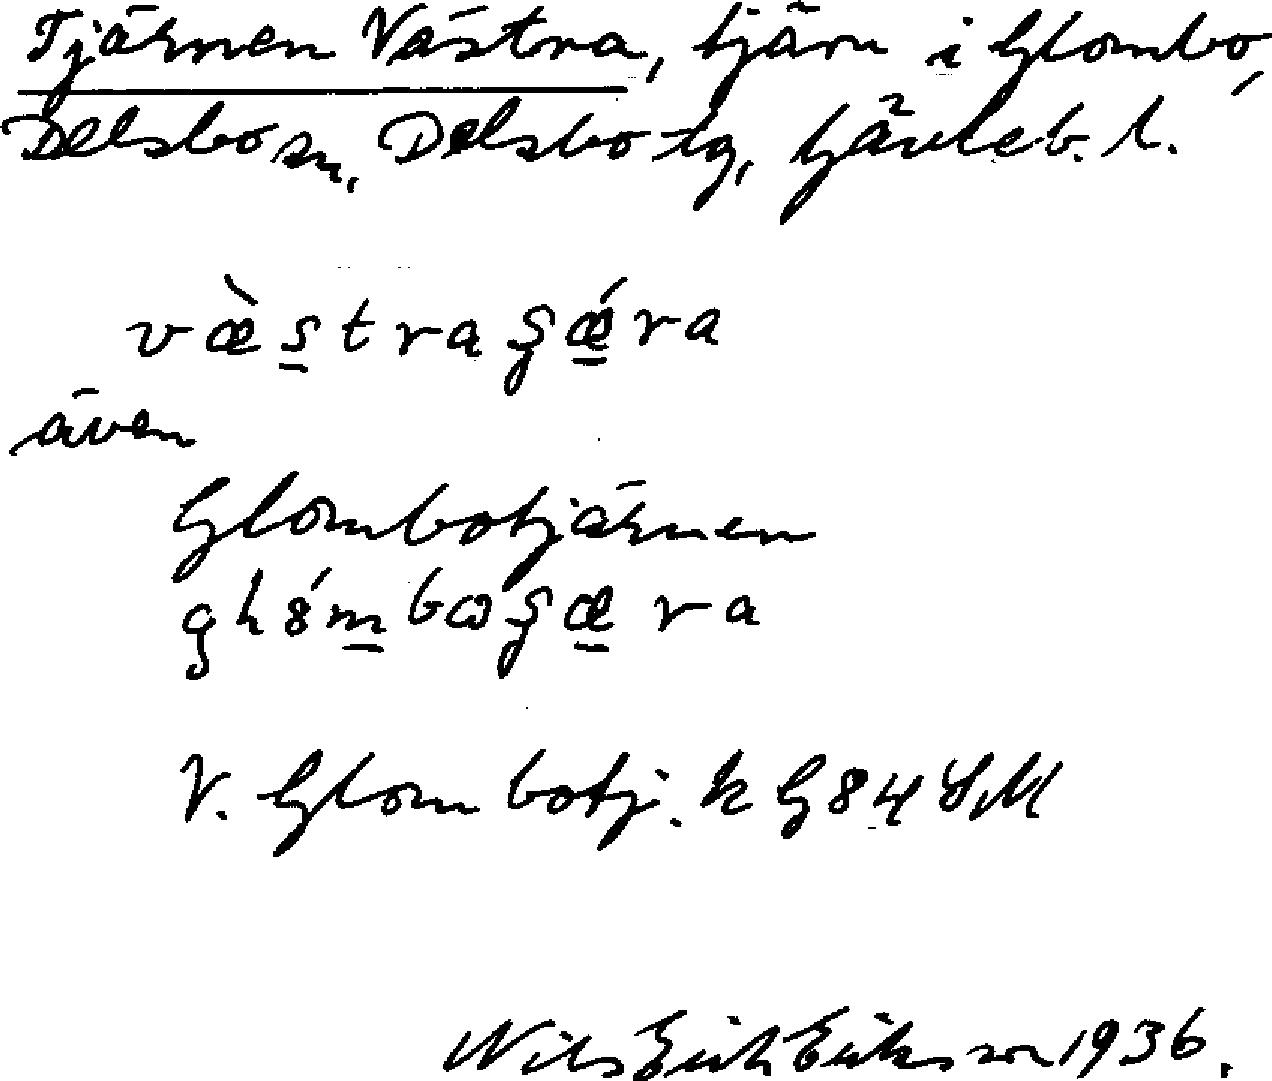 Tjärnen Västra, tjärn i Glombo,
Delsbo sn, Delsbo tg, Gävleb. l.
væ̀s̲traʂǽ̲ra
även
Glombotjärnen
gh8́m̲bωʂæ̲ra
V. Glombotj. k G84 SM
Nils Erik Eriksson 1936.